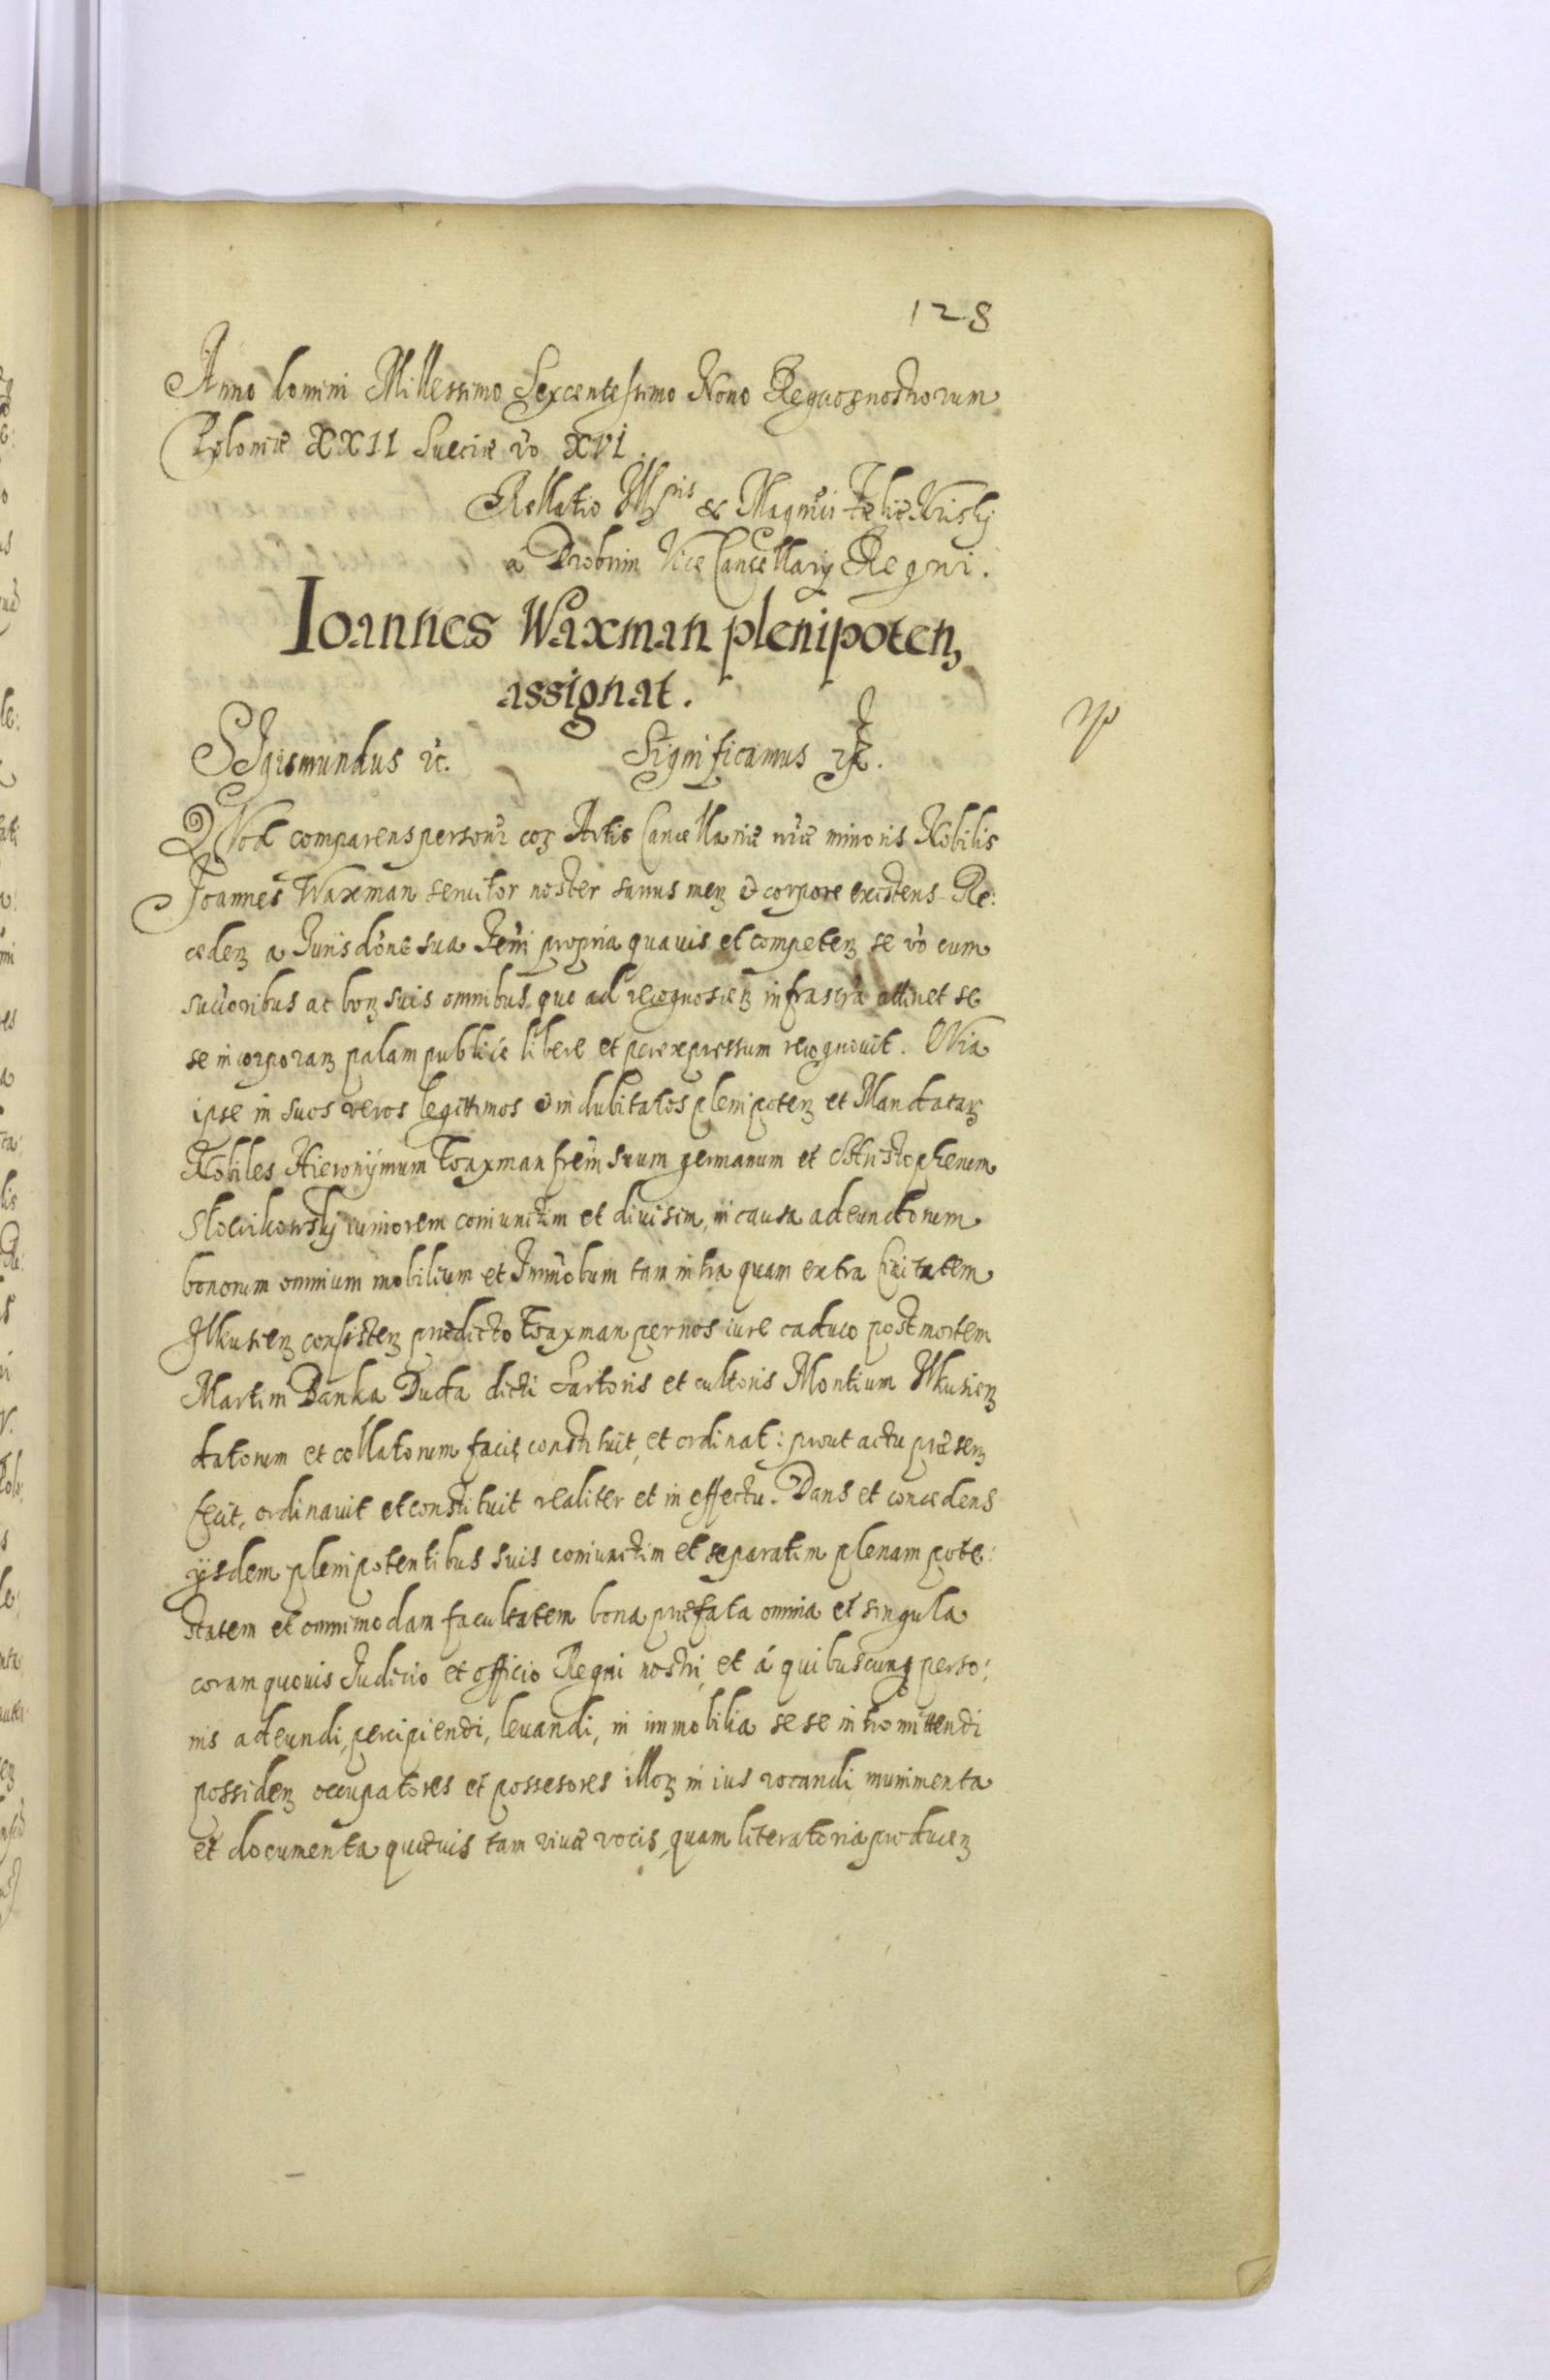 128
Anno Domini Millessimo Sexcentesimo Nono Regnor nostrorum
Poloniæ XXII Sueciæ vo XVI.
Rellatio & Magnci Felic Krisky
a Drobnin Vice Cancellary Regni.
Ioannes Waxman plenipoten
assignat.
SIgismundus etc. Significamus
QVod comparens personr cor Actis Cancellariæ nræ minoris Nobilis
Joannes Waxman seruitor noster sanus men et corpore existens Re:
ceden a Jurisdone sua propria quauis et competen se vo cum
succoribus ac bon suis omnibus quo ad recognoscen infrascra attinet se
se incorporan palam publice libere et perexpressum recognouit. Quia
ipse in suos veros legittimos et indubitatos plenipoten et Mandatar
Nobiles Hieronÿmum Waxman frem suum germanum et Christopherum
iuniorem coniunctim et diuisim, in causa adeundorum
bonorum omnium mobilium et Immobum tam intra quam extra Ciuitatem
Ilkusien consisten prædicto Waxman per nos iure caduco post mortem
Martini Banka Duda dicti Sartoris et cultoris Montium Ilkusien
datorum et collatorum facit, constituit, et ordinat: prout actu præsen
fecit, ordinauit et constituit realiter et in effectu. Dans et concedens
ÿsdem plenipotentibus suis coniunctim et separatim plenam pote:
statem et omnimodam facultatem bona præfata omnia et singula
coram quouis Judicio et officio Regni nostri, et á quibuscunq perso:
nis adeundi, percipiendi, leuandi, in immobilia sese intromittendi
possiden occupatores et possesores illor in ius vocandi munimenta
et documenta quæuis tam viuæ vocis, quam literatoria producen